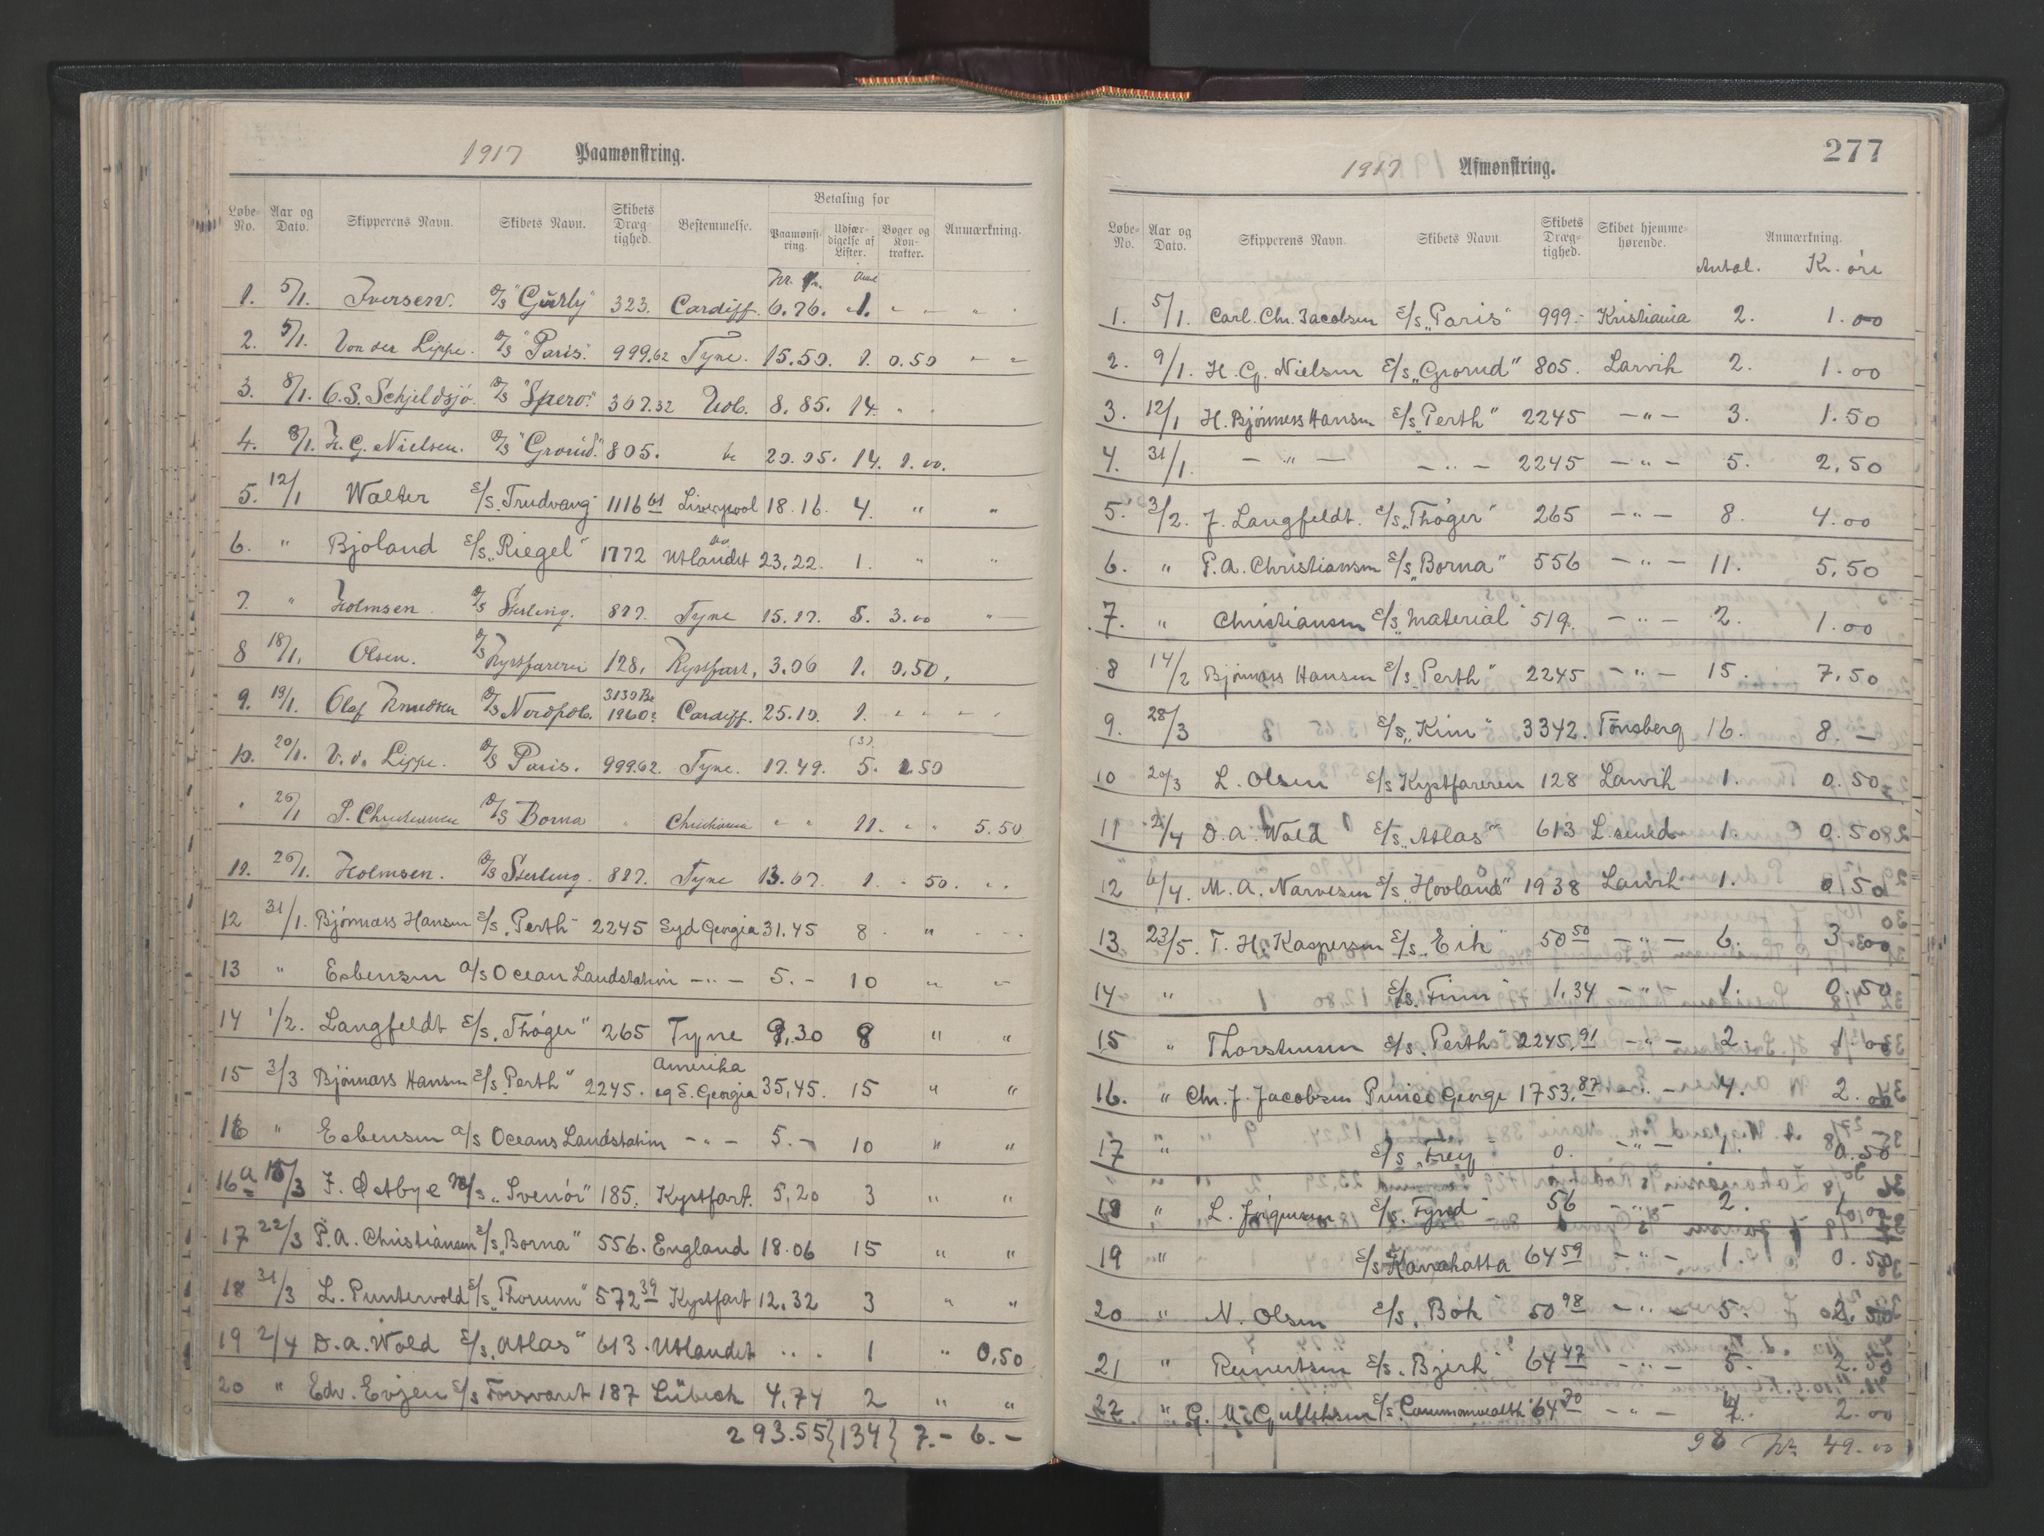 1917 Paamønstring.
Løbe-No. Aar og Dato. Skipperens Navn. Skibets Navn. Skibets Dræg-tighed. Bestemmelse. Betaling for Paamønst-ring. Udfær-digelse af Lister. Bøger og Kon-trakter. Anmærkning.
1. 5/1. Iversen. D/S "Gurly" 323. Cardiff. 6.76. 1. " "
2. 5/1. Von der Lippe. D/S "Paris". 999.62 Tyne. 15.50. 1. 0.50 " "
3. 8/1. C.S. Schjeldsjö. D/S "Spero". 367.32 8.85. 14. " "
4. 8/1. H. G. Nielsen. D/S "Grorud". 805. 20.05. 14. 1.00.
5. 12/1 Walter E/S "Trudvang" 1116 61 Liverpool 18.16. 4. " "
6. " Bjoland E/S "Riegel" 1772 Utlandet 23.22. 1. " "
7. " Holmsen. D/S Sterling. 887. Tyne 15.17. 5. 3.00 "
8 18/1. Olsen. D/S Kystfareren 128. Kystfart. 3.06 1. 0.50.
9. 19/1. Olaf Knudsen D/S Nordpol. 1960 Cardiff. 25.10. 1. " " "
10. 20/1. V. d. Lippe. D/S Paris. 999.62. Tyne. 17.49. (3) 5. 1.50
" 26/1 P. Christiansen D/S Borna " Christiania " " 11. " " 5.50
11. 26/1. Holmsen. D/S Sterling. 887. Tyne 13.67. 1. - 50. " "
12 31/1. Bjønnæss Hansen E/S "Perth" 2245 Syd Georgia 31.45 8 "
13 " Esbensen A/S Ocean Landstation - " - 5.- 10 " "
14 1/2. Langfeldt E/S "Thöger" 265 Tyne 9.30 8 " "
15 3/3 Bjønnæss Hansen E/S "Perth" 2245. Amerika og S. Georgia 35.45. 15 " "
16 " Esbensen A/S Oceans Landstation - " - 5.- 10 " "
16a 15/3 F. Østbye M/S "Svenör" 185. Kystfart. 5.20 3 " "
17 22/3 P.A. Christiansen E/S "Borna" 556. England 18.06 15 " "
18 31/3 L. Puntervold E/S "Thorunn" 572 39 Kystfart 12.32 3 " "
19 2/4 D.A. Wold E/S "Atlas" 613. Utlandet " . 1 " 0.50
20 " Edv. Evjen E/S Forsvaret 187 Lübeck 4.74 2 " "
293.55 {134} 7.- 6.-
277
1917 Afmønstring.
Løbe-No. Aar og Dato. Skipperens Navn. Skibets Navn. Skibets Dræg-tighed. Skibet hjemme-hørende. Anmærkning.
Antal. Kr. öre
1. 5/1. Carl. Chr. Jacobsen E/S "Paris" 999.- Kristiania 2. 1.00
2. 9/1. H. G. Nielsen E/S "Grorud" 805. Larvik 2. 1.00
3. 12/1 H. Bjønness Hansen E/S "Perth" 2245 - " - 3. 1.50
4. 31/1. - " - - " - 2245 - " - 5. 2.50
5. 3/2. J. Langfeldt. E/S "Thöger" 265 - " - 8. 4.00
6. " P.A. Christiansen E/S "Borna" 556 - " - 11. 5.50
7. " Christiansen E/S "Material" 519. - " - 2. 1.00
8 14/2 Bjønnæss Hansen E/S "Perth" 2245 - " - 15. 7.50
9. 28/3 E/S "Kim" 3342. Tönsberg 16. 8.-
10 20/3 L. Olsen E/S Kystfareren 128 Larvik 1. 0.50
11 2/4 D.A. Wold E/S "Atlas" 613 L.sund 1. 0.50
12 6/4. M. A. Narvesen E/S "Hovland" 1938 Larvik 1. 0.50
13 23/5. T. H. Kaspersen E/S "Erik" 50 50 - " - 6. 3.00
14 " E/S "Finn" 1.34 - " - 1. 0.50
15 " Thorstensen E/S "Perth" 2245.91 - " - 2. 1.00
16. " Chr. J. Jacobsen Prince George 1753.87 - " - 4. 2.00
17 " E/S "Frey" 0. - " - 1. 0.50
18 " L. Jörgensen E/S 56 - " - 2. 1.00
19 " E/S 64 59 - " - 1. 0.50
20 " N. Olsen E/S "Bök" 50 98 - " - 5. 2.50
21 " Reinertsen E/S "Bjerk" 64 47 - " - 5. 2.50
22. " G. M. Gulliksen E/S "Commonwealth" 64 70 - " - 4. 2.00
98 Kr. 49.00